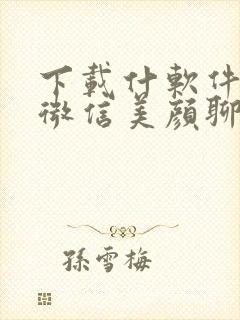 下載什軟件
微信美顔聊
孫雪梅